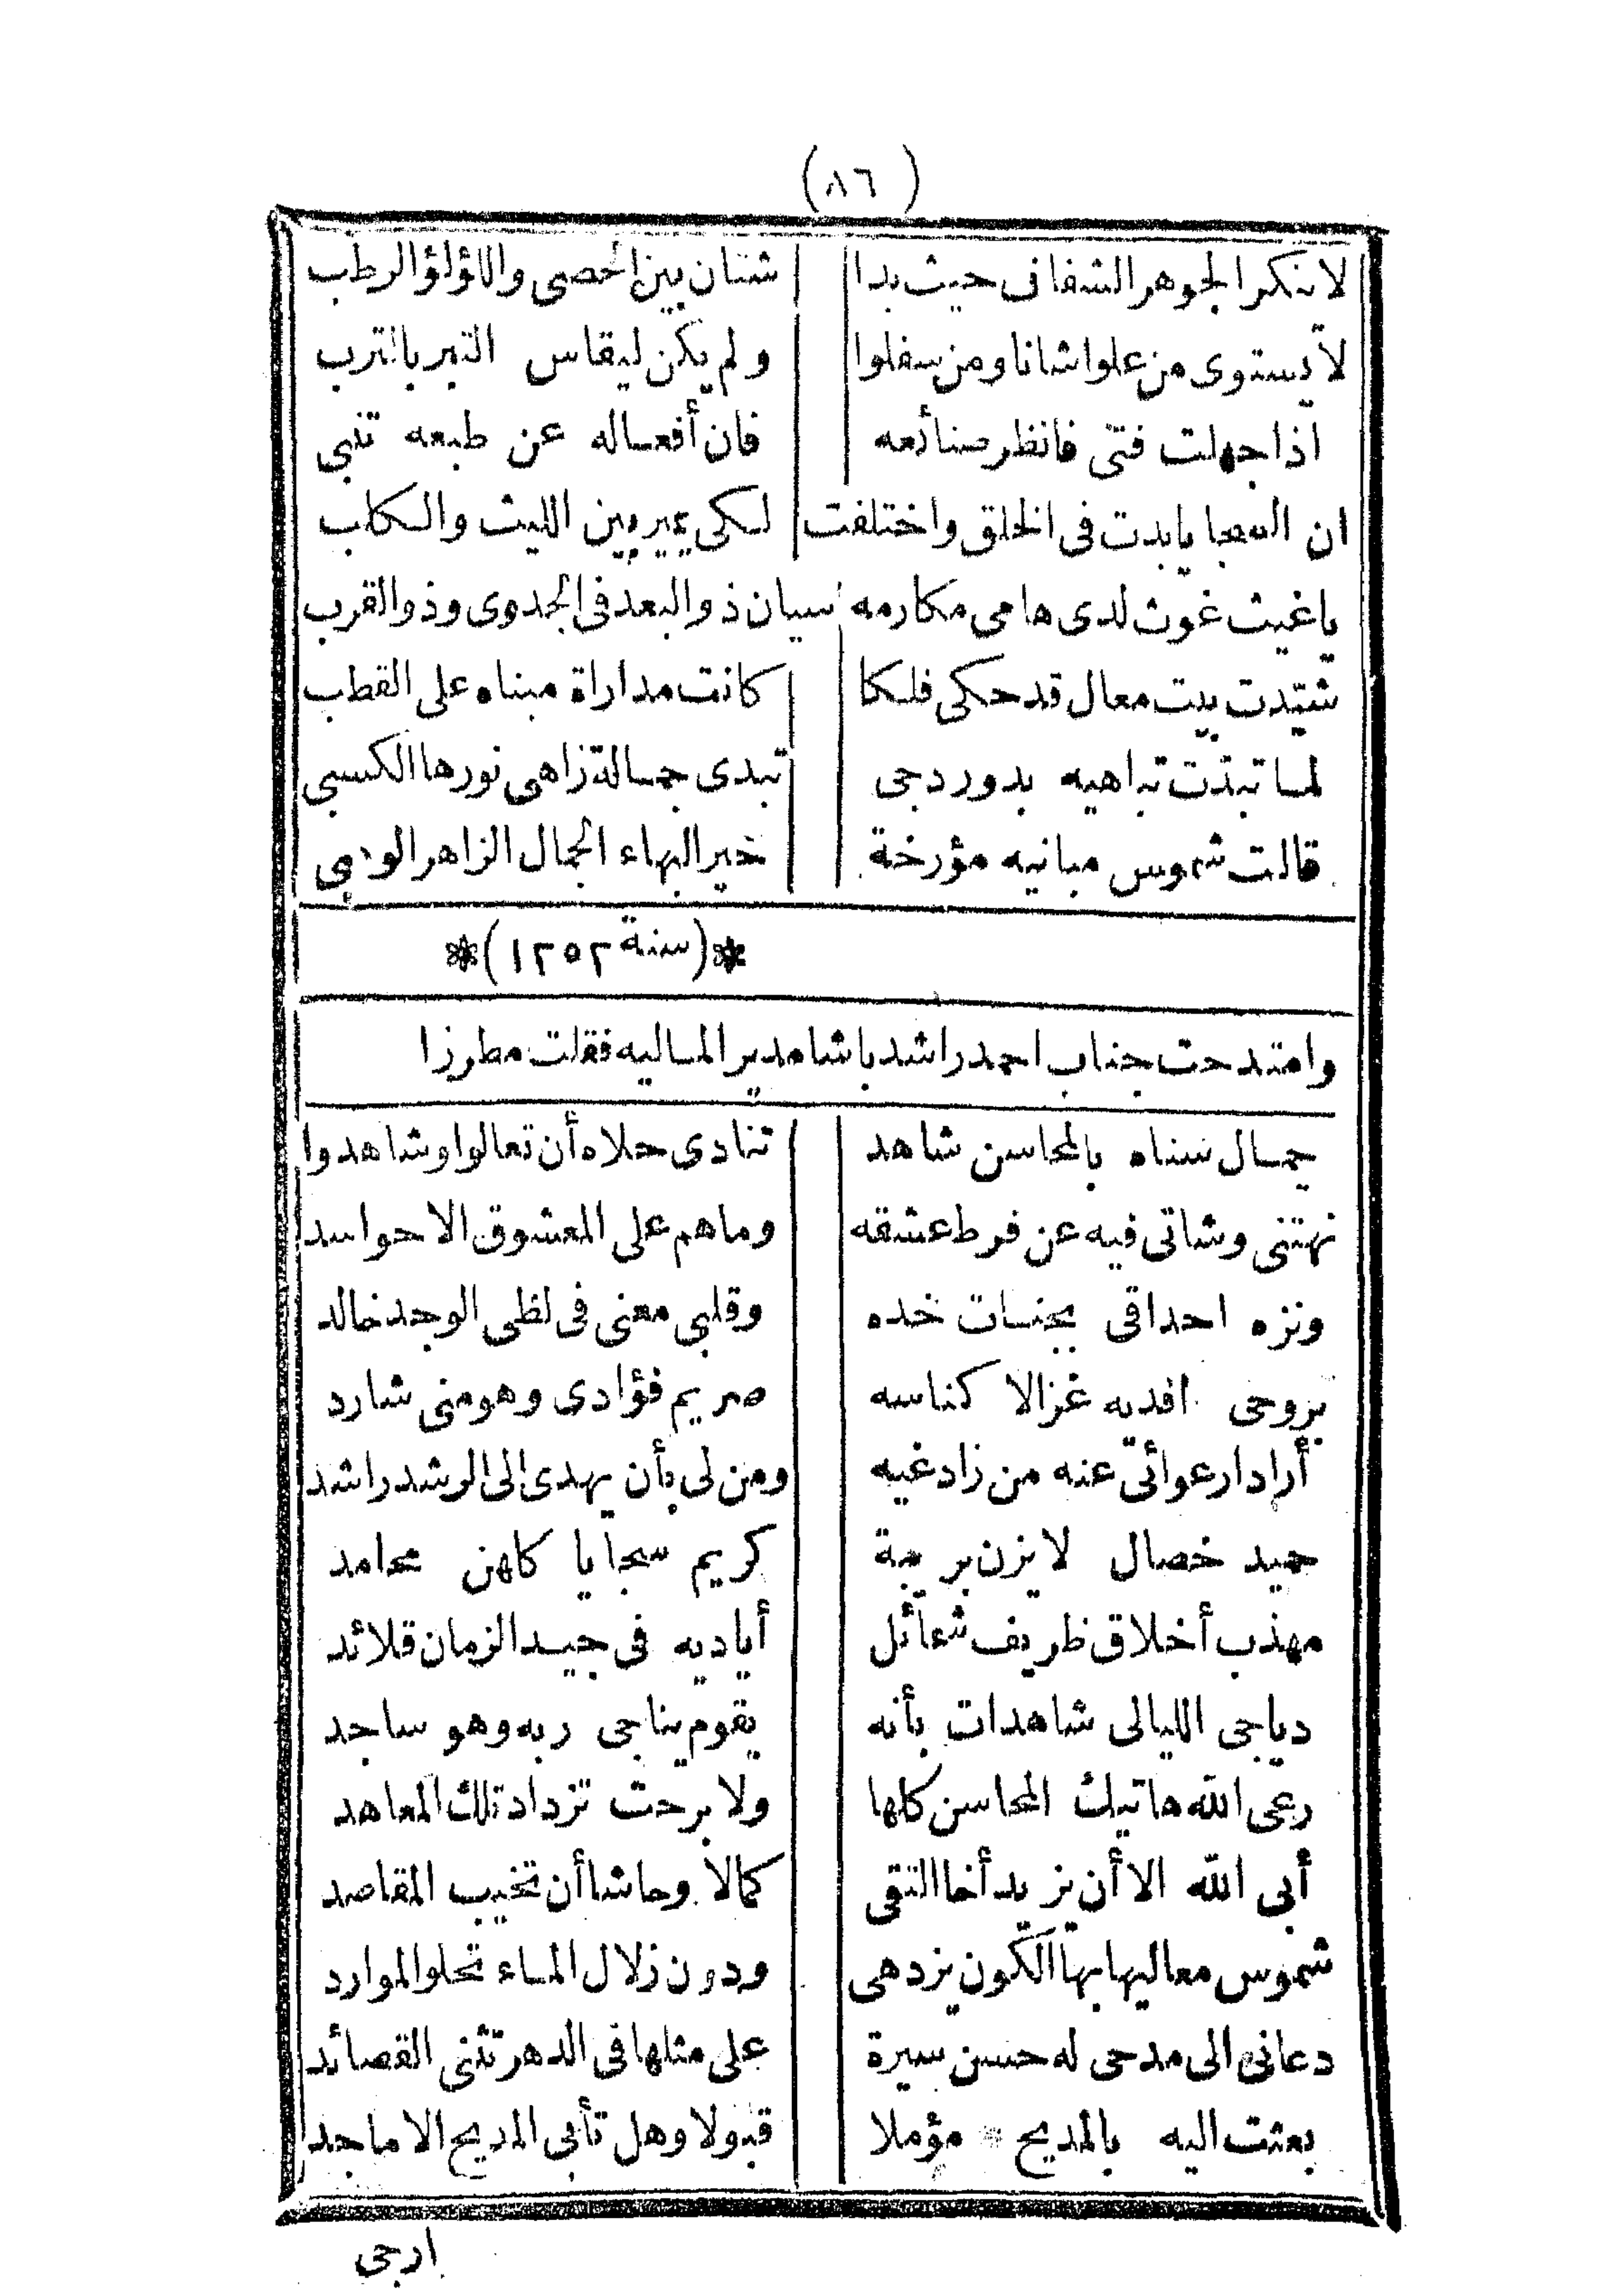 (٨٦)
لا ينكر الجوهر الشفاف حيث بدا شتان بين الحصى واللؤلؤ الرطب
لا يستوى من علوا شانا ومن سفلوا ولم يكن ليقاس التبر بالترب
اذا جهلت فتى فانظر صنائعه فان أفعاله عن طبعه تنبى
ان السجايا بدت فى الخلق واختلفت لكى يميز بين الليث والكلب
ياغيث غوث لدى هامى مكارمه سيان ذو البعد فى الجدوى وذو القرب
شيدت بيت معال قد حكى فلكا كانت مداراة مبناه على القطب
لما تبدّت تباهيه بدور دجى تبدى جمالة زاهى نورها الكسبى
قالت شموس مبانيه مؤرخة خير البهاء الجمال الزاهر الوهبى
*(سنة ١٢٥٢)*
وامتدحت جناب احمد راشد باشا مدير الماليه فقلت مطرزا
جمال سناه بالمحاسن شاهد تنادى حلاه أن تعالوا وشاهدوا
نهتنى وشاتى فيه عن فرط عشقه وما هم على المعشوق الا حواسد
ونزه احداقى بجنات خده وقلبى معنى فى لظى الوجد خالد
بروحى افديه غزالا كناسه صريم فؤادى وهو منى شارد
أراد ارعوائى عنه من زاد غيه ومن لى بأن يهدى الى الرشد راشد
حميد خصال لا يزن بريبة كريم سجايا كلهن محامد
مهذب أخلاق ظريف شمائل أياديه فى جيد الزمان قلائد
دياجى الليالى شاهدات بأنه يقوم يناجى ربه وهو ساجد
رعى الله هاتيك المحاسن كلها ولا برحت تزداد تلك المعاهد
أبى الله الا أن يزيد أخا التقى كمالا وحاشا أن تخيب المقاصد
شموس معاليها بها الكون يزدهى ودون زلال الماء تحلو الموارد
دعانى الى مدحى له حسن سيرة على مثلها فى الدهر تثنى القصائد
بعثت اليه بالمديح مؤملا قبولا وهل تأبى المديح الاماجد
ارجى